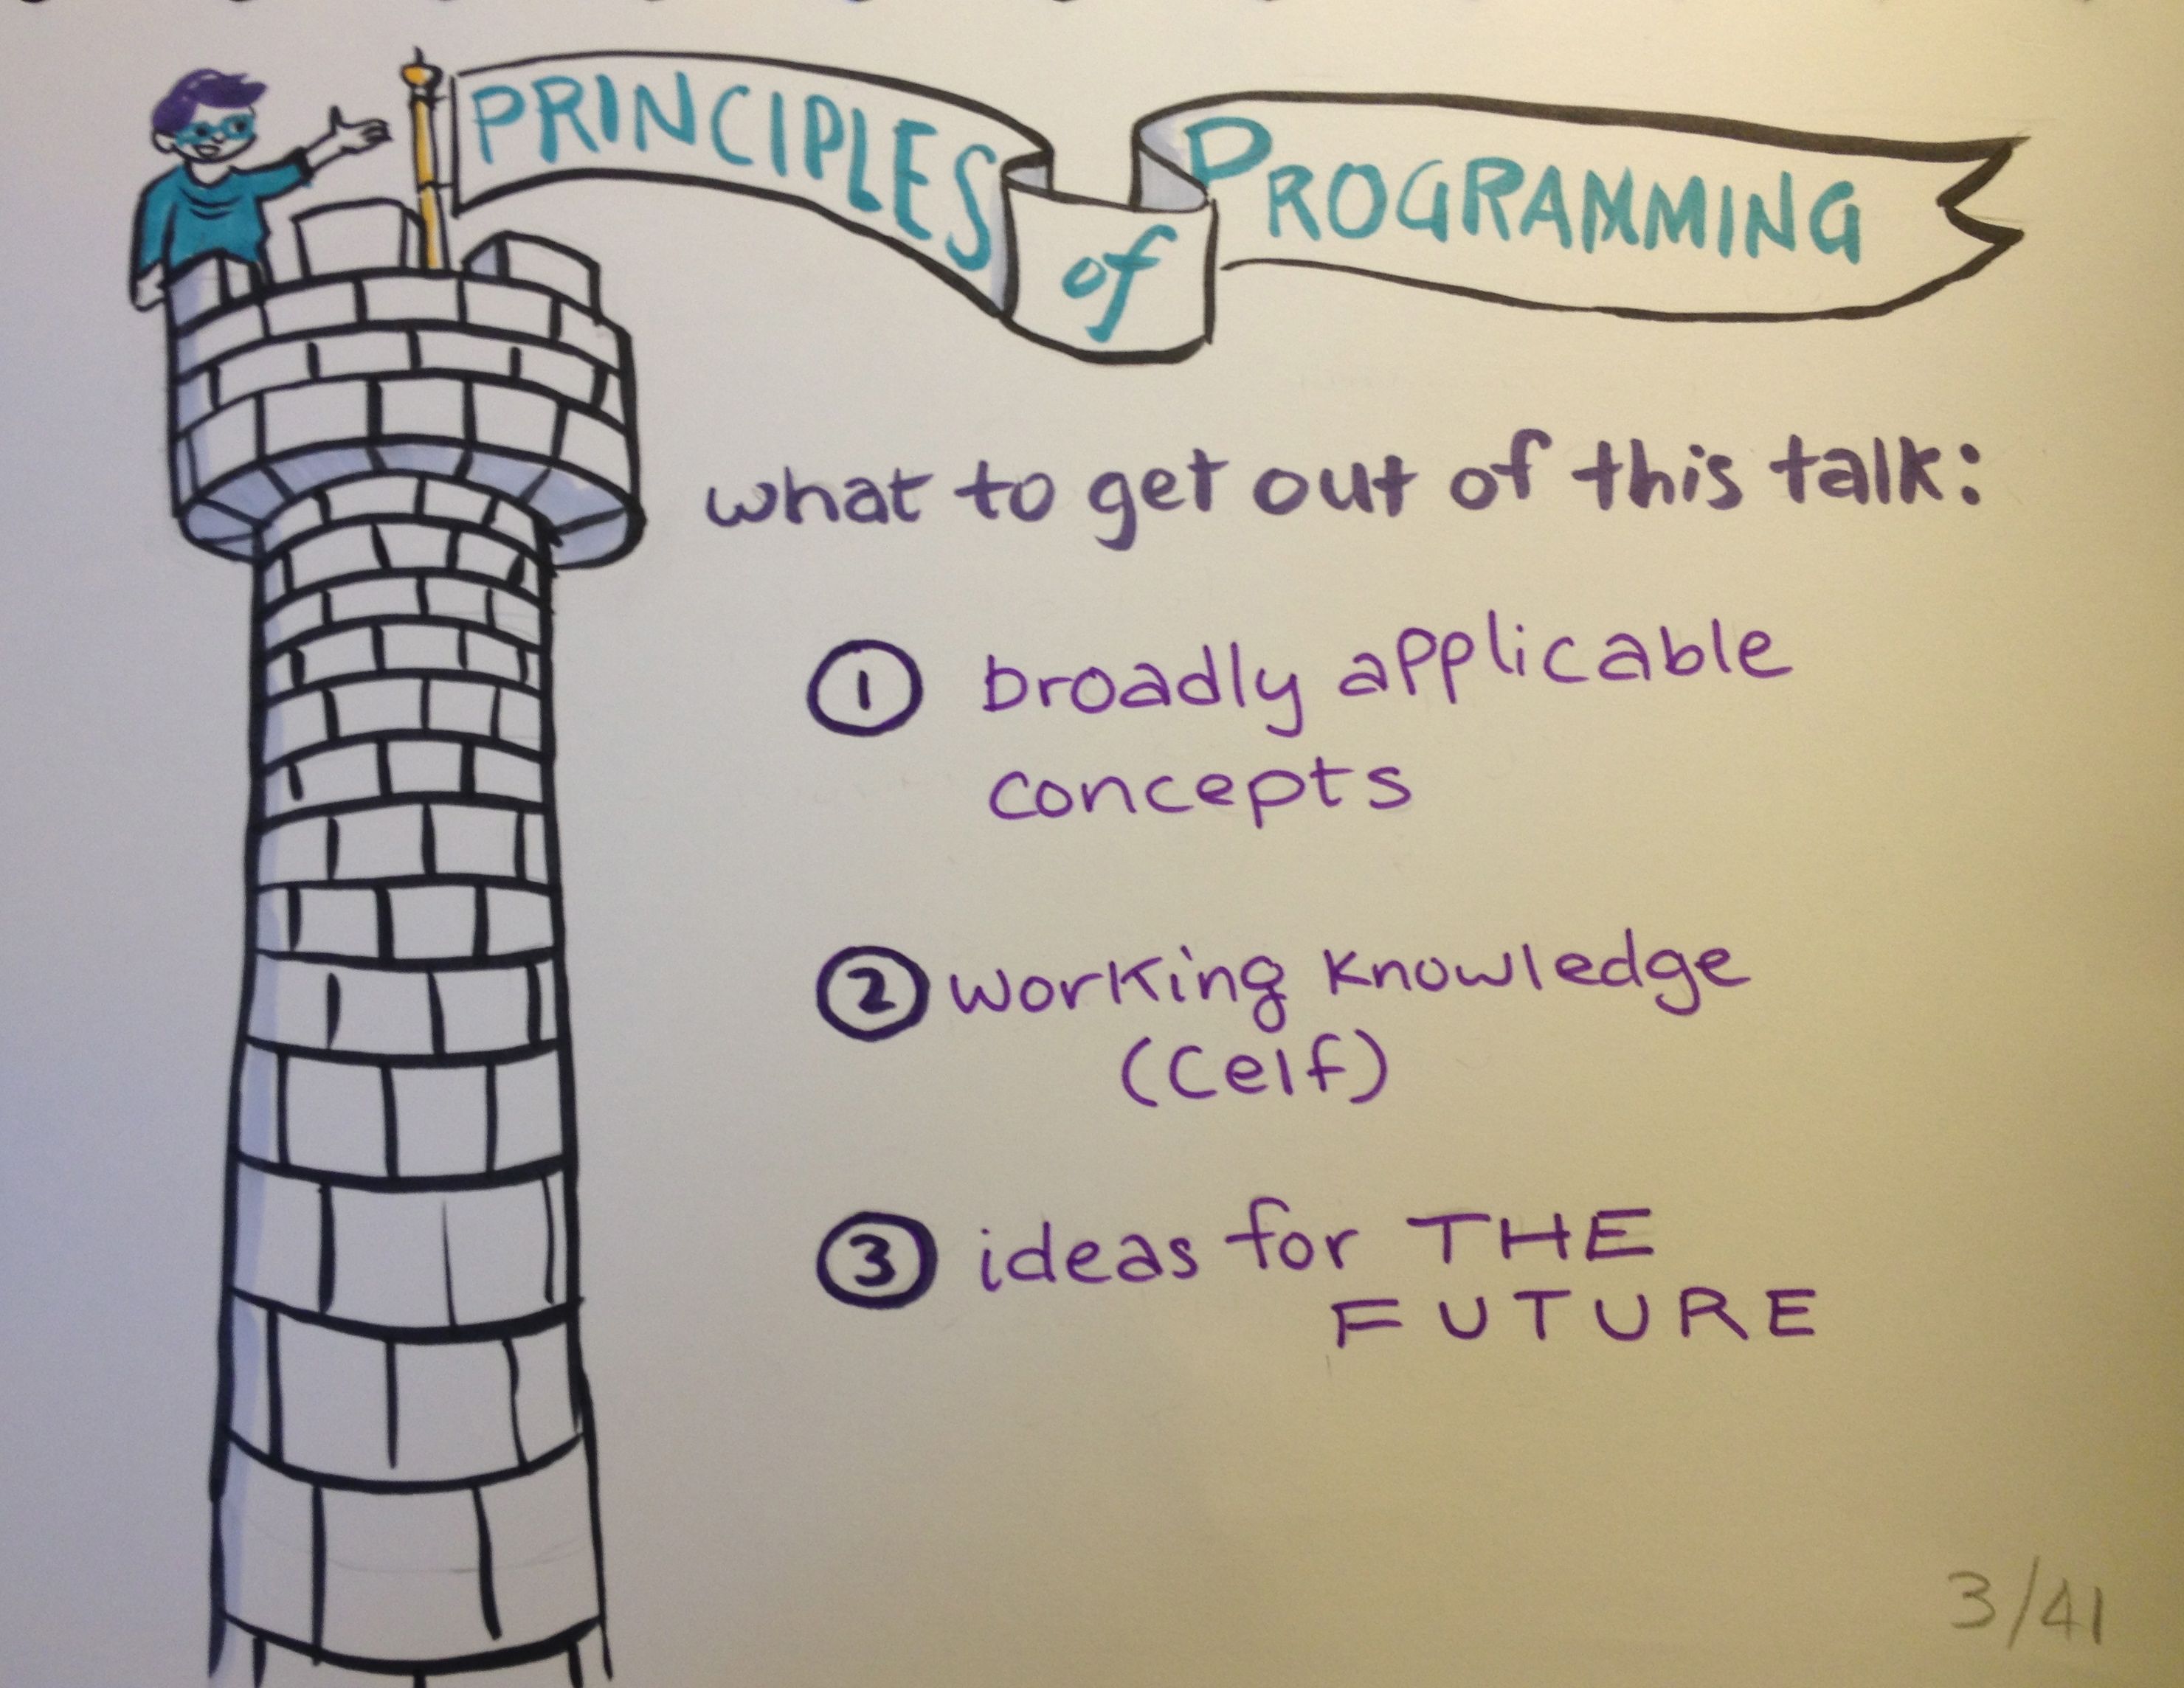 PRINCIPLES of PROGRAMMING
what to get out of this talk:
1 broadly applicable
concepts
2 working knowledge
(Celf)
3 ideas for THE
FUTURE
3/41